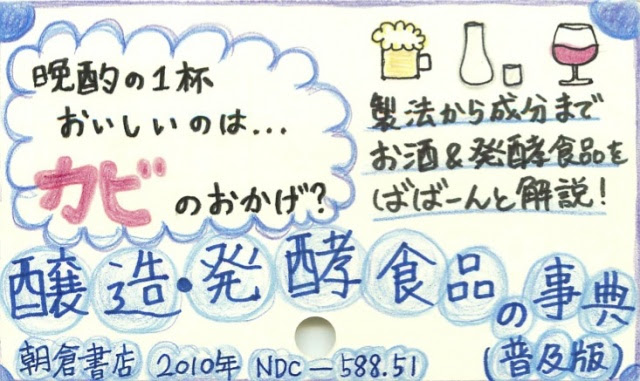 晩酌の1杯
おいしいのは...
カビのおかげ?
製法から成分まで
お酒&発酵食品を
ばばーんと解説!
醸造・発酵食品の事典
(普及版)
朝倉書店 2010年 NDC-588.51